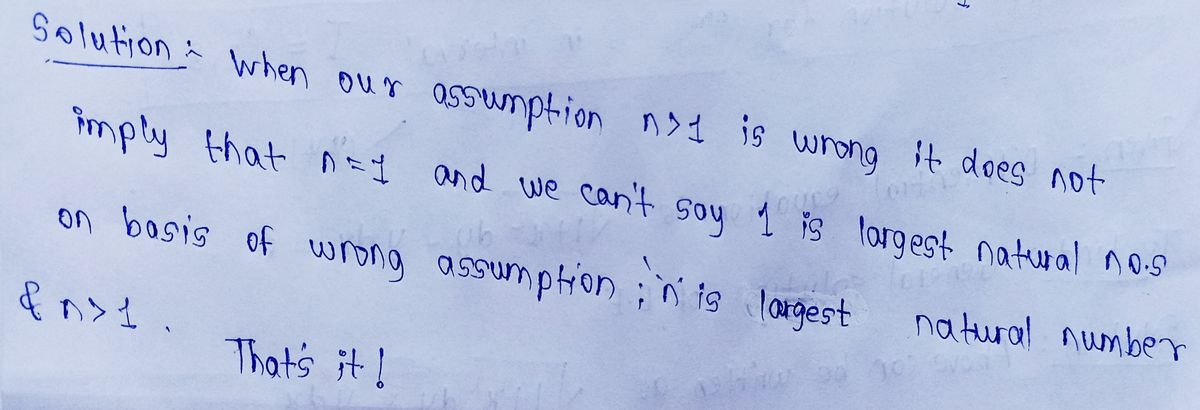 Solution :- When our assumption n>1 is wrong it does not
imply that n=1 and we can't say 1 is largest natural no.s
on basis of wrong assumption ; 'n' is largest natural number
& n>1 .
That's it !